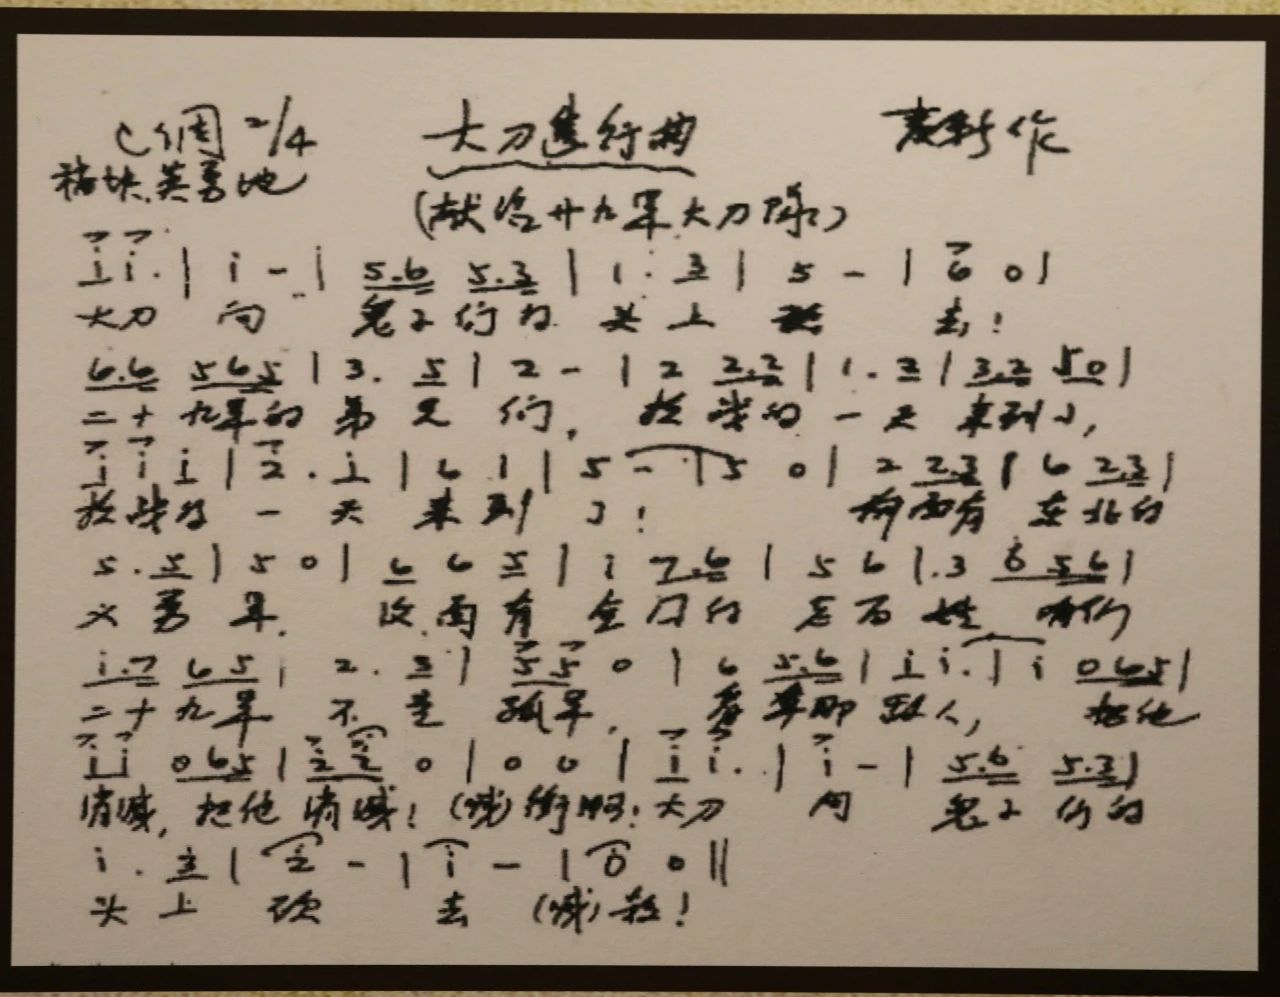 C调 2/4 大刀进行曲 麦新作
稍快.英勇地 (献给廿九军大刀队)
i i. | i - | 5.6 5.3 | 1. 3 | 5 - | 6 0 |
大刀 向 鬼子们的 头上 砍 去!
6.6 565 | 3. 5 | 2 - | 2 2.2 | 1. 2 | 3.2 50 |
二十九军的弟兄们, 抗战的一天来到了,
i i i | 2. i | 6 1 | 5 - | 5 0 | 2 2.3 | 6 2.3 |
抗战的一天来到了! 前面有东北的
5. 5 | 5 0 | 6 6 5 | i 7.6 | 5 6 | .3 6 56 |
义勇军. 后面有全国的老百姓 咱们
i.7 65 | 2. 3 | 55 0 | 6 5.6 | i i. | i 065 |
二十九军不是孤军. 看准那敌人, 把他
i i 065 | 2 2 0 | 0 0 | i i. | i - | 5.6 5.3 |
消灭, 把他消灭! (喊)冲啊! 大刀 向 鬼子们的
i. 3 | 2 - | i - | 0 0 ||
头上 砍 去 (喊)杀!